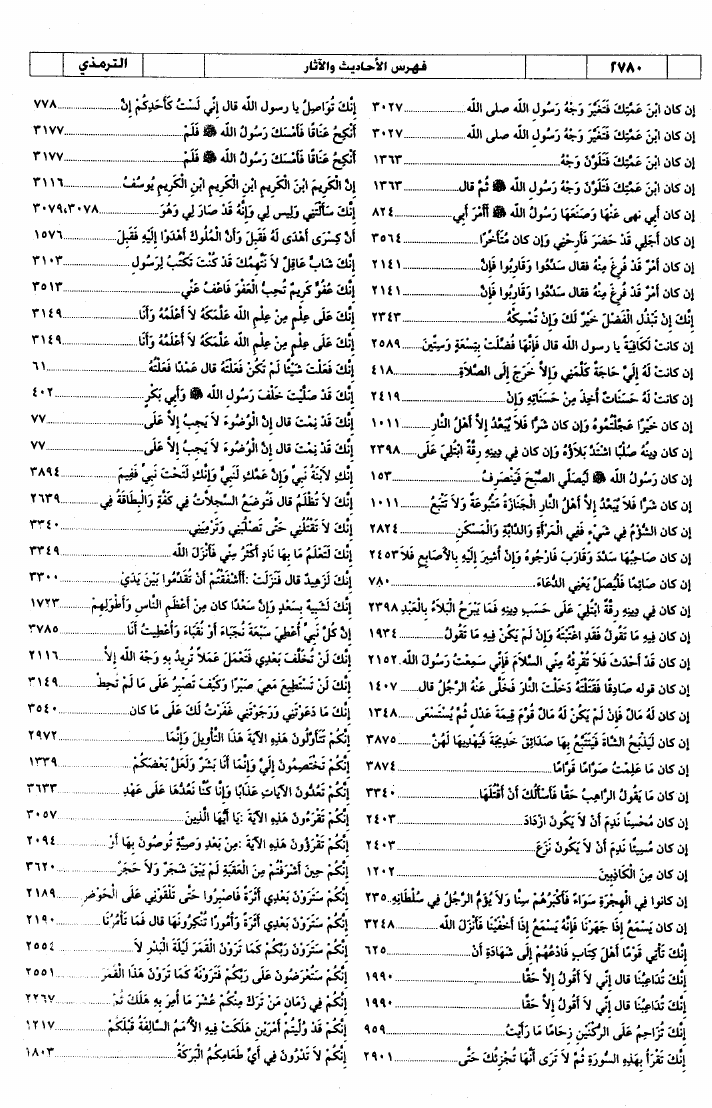 ٢٧٨٠
فهرس الأحاديث والآثار
الترمذي
إن كان ابنَ عَمَّتِكَ فَتَغَيَّرَ وَجْهُ رَسُولِ الله صلى الله ٣٠٢٧
إن كان ابنَ عَمَّتِكَ فَتَغَيَّرَ وَجْهُ رَسُولِ الله صلى الله ٣٠٢٧
إن كان ابنَ عَمَّتِكَ فَتَلَوَّنَ وَجْهُ ١٣٦٣
إن كان ابنَ عَمَّتِكَ فَتَلَوَّنَ وَجْهُ رَسُولِ الله ﷺ ثُمَّ قال ١٣٦٣
إن كان أبي نهى عَنْهَا وَصَنَعَهَا رَسُولُ الله ﷺ أَأَمْرَ أبي ٨٢٤
إن كان أجَلِي قَدْ حَضَرَ فَأَرِحْنِي وإن كان مُتَأخِّرًا ٣٥٦٤
إن كان أَمْرٌ قَدْ فُرِغَ مِنْهُ فقال سَدِّدُوا وَقَارِبُوا فَإِنَّ ٢١٤١
إن كان أَمْرٌ قَدْ فُرِغَ مِنْهُ فقال سَدِّدُوا وَقَارِبُوا فَإِنَّ ٢١٤١
إِنَّكَ إِنْ تَبْذُلِ الْفَضْلَ خَيْرٌ لَكَ وَإِنْ تُمْسِكْهُ ٢٣٤٣
إن كانت لَكَافِيَةً يا رسول الله قال فَإِنَّهَا فُضِّلَتْ بِتِسْعَةٍ وَسِتِّينَ ٢٥٨٩
إن كانت لَهُ إِلَيَّ حَاجَةٌ كَلَّمَنِي وَإِلاَّ خَرَجَ إِلَى الصَّلاَةِ ٤١٨
إن كانت لَهُ حَسَنَاتٌ أُخِذَ مِنْ حَسَنَاتِهِ وَإِنْ ٢٤١٩
إن كان خَيْرًا عَجَّلْتُمُوهُ وإن كان شَرًّا فَلاَ يُبَعَّدُ إِلاَّ أَهْلُ النَّارِ ١٠١١
إن كان دِينُهُ صُلْبًا اشْتَدَّ بَلاَؤُهُ وإن كان في دِينِهِ رِقَّةٌ ابْتُلِيَ عَلَى ٢٣٩٨
إن كان رَسُولُ الله ﷺ لَيُصَلِّي الصُّبْحَ فَيَنْصَرِفُ ١٥٣
إن كان شَرًّا فَلاَ يُبَعَّدُ إِلاَّ أَهْلُ النَّارِ الْجَنَازَةُ مَتْبُوعَةٌ وَلاَ تَتْبَعُ ١٠١١
إن كان الشُّؤْمُ في شَيْءٍ فَفِي الْمَرْأَةِ وَالدَّابَّةِ وَالْمَسْكَنِ ٢٨٢٤
إن كان صَاحِبُهَا سَدَّدَ وَقَارَبَ فَارْجُوهُ وَإِنْ أُشِيرَ إِلَيْهِ بِالأَصَابِعِ فَلاَ ٢٤٥٣
إن كان صَائِمًا فَلْيُصَلِّ يَعْنِي الدُّعَاءَ ٧٨٠
إن كان في دِينِهِ رِقَّةٌ ابْتُلِيَ عَلَى حَسَبِ دِينِهِ فَمَا يَبْرَحُ الْبَلاَءُ بِالْعَبْدِ ٢٣٩٨
إن كان فِيهِ مَا تَقُولُ فَقَدِ اغْتَبْتَهُ وَإِنْ لَمْ يَكُنْ فِيهِ مَا تَقُولُ ١٩٣٤
إن كان قَدْ أَحْدَثَ فَلاَ تُقْرِئْهُ مِنِّي السَّلاَمَ فَإِنِّي سَمِعْتُ رَسُولَ الله ٢١٥٢
إن كان قوله صَادِقًا فَقَتَلْتَهُ دَخَلْتَ النَّارَ فَخَلَّى عَنْهُ الرَّجُلُ قال ١٤٠٧
إن كان لَهُ مَالٌ فَإِنْ لَمْ يَكُنْ لَهُ مَالٌ قُوِّمَ قِيمَةَ عَدْلٍ ثُمَّ يُسْتَسْعَى ١٣٤٨
إن كان لَيَذْبَحُ الشَّاةَ فَيَتَتَبَّعُ بِهَا صَدَائِقَ خَدِيجَةَ فَيُهْدِيهَا لَهُنَّ ٣٨٧٥
إن كان مَا عَلِمْتُ صَوَّامًا قَوَّامًا ٣٨٧٤
إن كان مَا يَقُولُ الرَّاهِبُ حَقًّا فَأَسْأَلُكَ أَنْ أَقْتُلَهَا ٣٣٤٠
إن كان مُحْسِنًا نَدِمَ أَنْ لاَ يَكُونَ ازْدَادَ ٢٤٠٣
إن كان مُسِيئًا نَدِمَ أَنْ لاَ يَكُونَ نَزَعَ ٢٤٠٣
إن كان مِنَ الْكَاذِبِينَ ١٢٠٢
إن كانوا في الْهِجْرَةِ سَوَاءً فَأَكْبَرُهُمْ سِنًّا وَلاَ يُؤَمُّ الرَّجُلُ في سُلْطَانِهِ ٢٣٥
إن كان يَسْمَعُ إِذَا جَهَرْنَا فَإِنَّهُ يَسْمَعُ إِذَا أَخْفَيْنَا فَأَنْزَلَ الله ٣٢٤٨
إِنَّكَ تَأْتِي قَوْمًا أَهْلَ كِتَابٍ فَادْعُهُمْ إِلَى شَهَادَةِ أَنْ ٦٢٥
إِنَّكَ تُدَاعِبُنَا قال إِنِّي لاَ أَقُولُ إِلاَّ حَقًّا ١٩٩٠
إِنَّكَ تُدَاعِبُنَا قال إِنِّي لاَ أَقُولُ إِلاَّ حَقًّا ١٩٩٠
إِنَّكَ تُزَاحِمُ عَلَى الرُّكْنَيْنِ زِحَامًا مَا رَأَيْتُ ٩٥٩
إِنَّكَ تَقْرَأُ بِهَذِهِ السُّورَةِ ثُمَّ لاَ تَرَى أَنَّهَا تُجْزِئُكَ حَتَّى ٢٩٠١
إِنَّكَ تُوَاصِلُ يا رسول الله قال إِنِّي لَسْتُ كَأَحَدِكُمْ إِنَّ ٧٧٨
أَنْكِحُ عَنَاقًا فَأَمْسَكَ رَسُولُ الله ﷺ فَلَمْ ٣١٧٧
أَنْكِحُ عَنَاقًا فَأَمْسَكَ رَسُولُ الله ﷺ فَلَمْ ٣١٧٧
إِنَّ الْكَرِيمَ ابْنَ الْكَرِيمِ ابْنِ الْكَرِيمِ ابْنِ الْكَرِيمِ يُوسُفُ ٣١١٦
إِنَّكَ سَأَلْتَنِي وَلَيْسَ لِي وَإِنَّهُ قَدْ صَارَ لِي وَهُوَ ٣٠٧٨،٣٠٧٩
أَنَّ كِسْرَى أَهْدَى لَهُ فَقَبِلَ وَأَنَّ الْمُلُوكَ أَهْدَوْا إِلَيْهِ فَقَبِلَ ١٥٧٦
إِنَّكَ شَابٌّ عَاقِلٌ لاَ نَتَّهِمُكَ قَدْ كُنْتَ تَكْتُبُ لِرَسُولِ ٣١٠٣
إِنَّكَ عَفُوٌّ كَرِيمٌ تُحِبُّ الْعَفْوَ فَاعْفُ عَنِّي ٣٥١٣
إِنَّكَ عَلَى عِلْمٍ مِنْ عِلْمِ الله عَلَّمَكَهُ لاَ أَعْلَمُهُ وَأَنَا ٣١٤٩
إِنَّكَ عَلَى عِلْمٍ مِنْ عِلْمِ الله عَلَّمَكَهُ لاَ أَعْلَمُهُ وَأَنَا ٣١٤٩
إِنَّكَ فَعَلْتَ شَيْئًا لَمْ تَكُنْ فَعَلْتَهُ قال عَمْدًا فَعَلْتُهُ ٦١
إِنَّكَ قَدْ صَلَّيْتَ خَلْفَ رَسُولِ الله ﷺ وَأَبِي بَكْرٍ ٤٠٢
إِنَّكَ قَدْ نِمْتَ قال إِنَّ الْوُضُوءَ لاَ يَجِبُ إِلاَّ عَلَى ٧٧
إِنَّكَ قَدْ نِمْتَ قال إِنَّ الْوُضُوءَ لاَ يَجِبُ إِلاَّ عَلَى ٧٧
إِنَّكِ لاَبْنَةُ نَبِيٍّ وَإِنَّ عَمَّكِ لَنَبِيٌّ وَإِنَّكِ لَتَحْتَ نَبِيٍّ فَفِيمَ ٣٨٩٤
إِنَّكَ لاَ تُظْلَمُ قال فَتُوضَعُ السِّجِلاَّتُ في كِفَّةٍ وَالْبِطَاقَةُ في ٢٦٣٩
إِنَّكَ لاَ تَقْتُلُنِي حَتَّى تَصْلُبَنِي وَتَرْمِيَنِي ٣٣٤٠
إِنَّكَ لَتَعْلَمُ مَا بِهَا نَادٍ أَكْثَرُ مِنِّي فَأَنْزَلَ الله ٣٣٤٩
إِنَّكَ لَزَهِيدٌ قال فَنَزَلَتْ :أَأَشْفَقْتُمْ أَنْ تُقَدِّمُوا بَيْنَ يَدَيْ ٣٣٠٠
إِنَّكَ لَشَبِيهٌ بِسَعْدٍ وَإِنَّ سَعْدًا كان مِنْ أَعْظَمِ النَّاسِ وَأَطْوَلِهِمْ ١٧٢٣
إِنَّ كُلَّ نَبِيٍّ أُعْطِيَ سَبْعَةَ نُجَبَاءَ أَوْ نُقَبَاءَ وَأُعْطِيتُ أَنَا ٣٧٨٥
إِنَّكَ لَنْ تُخَلَّفَ بَعْدِي فَتَعْمَلَ عَمَلاً تُرِيدُ بِهِ وَجْهَ الله إِلاَّ ٢١١٦
إِنَّكَ لَنْ تَسْتَطِيعَ مَعِيَ صَبْرًا وَكَيْفَ تَصْبِرُ عَلَى مَا لَمْ تُحِطْ ٣١٤٩
إِنَّكَ مَا دَعَوْتَنِي وَرَجَوْتَنِي غَفَرْتُ لَكَ عَلَى مَا كان ٣٥٤٠
إِنَّكُمْ تَتَأَوَّلُونَ هَذِهِ الآيَةَ هَذَا التَّأْوِيلَ وَإِنَّمَا ٢٩٧٢
إِنَّكُمْ تَخْتَصِمُونَ إِلَيَّ وَإِنَّمَا أَنَا بَشَرٌ وَلَعَلَّ بَعْضَكُمْ ١٣٣٩
إِنَّكُمْ تَعُدُّونَ الآيَاتِ عَذَابًا وَإِنَّا كُنَّا نَعُدُّهَا عَلَى عَهْدِ ٣٦٣٣
إِنَّكُمْ تَقْرَءُونَ هَذِهِ الآيَةَ :يَا أَيُّهَا الَّذِينَ ٣٠٥٧
إِنَّكُمْ تَقْرَؤُونَ هَذِهِ الآيَةَ :مِنْ بَعْدِ وَصِيَّةٍ تُوصُونَ بِهَا أَوْ ٢٠٩٤
إِنَّكُمْ حِينَ أَشْرَفْتُمْ مِنَ الْعَقَبَةِ لَمْ يَبْقَ شَجَرٌ وَلاَ حَجَرٌ ٣٦٢٠
إِنَّكُمْ سَتَرَوْنَ بَعْدِي أَثَرَةً فَاصْبِرُوا حَتَّى تَلْقَوْنِي عَلَى الْحَوْضِ ٢١٨٩
إِنَّكُمْ سَتَرَوْنَ بَعْدِي أَثَرَةً وَأُمُورًا تُنْكِرُونَهَا قال فَمَا تَأْمُرُنَا ٢١٩٠
إِنَّكُمْ سَتَرَوْنَ رَبَّكُمْ كَمَا تَرَوْنَ الْقَمَرَ لَيْلَةَ الْبَدْرِ لاَ ٢٥٥٤
إِنَّكُمْ سَتُعْرَضُونَ عَلَى رَبِّكُمْ فَتَرَوْنَهُ كَمَا تَرَوْنَ هَذَا الْقَمَرَ ٢٥٥١
إِنَّكُمْ في زَمَانٍ مَنْ تَرَكَ مِنْكُمْ عُشْرَ مَا أُمِرَ بِهِ هَلَكَ ثُمَّ ٢٢٦٧
إِنَّكُمْ قَدْ وُلِّيتُمْ أَمْرَيْنِ هَلَكَتْ فِيهِ الأُمَمُ السَّالِفَةُ قَبْلَكُمْ ١٢١٧
إِنَّكُمْ لاَ تَدْرُونَ في أَيِّ طَعَامِكُمُ الْبَرَكَةُ ١٨٠٣